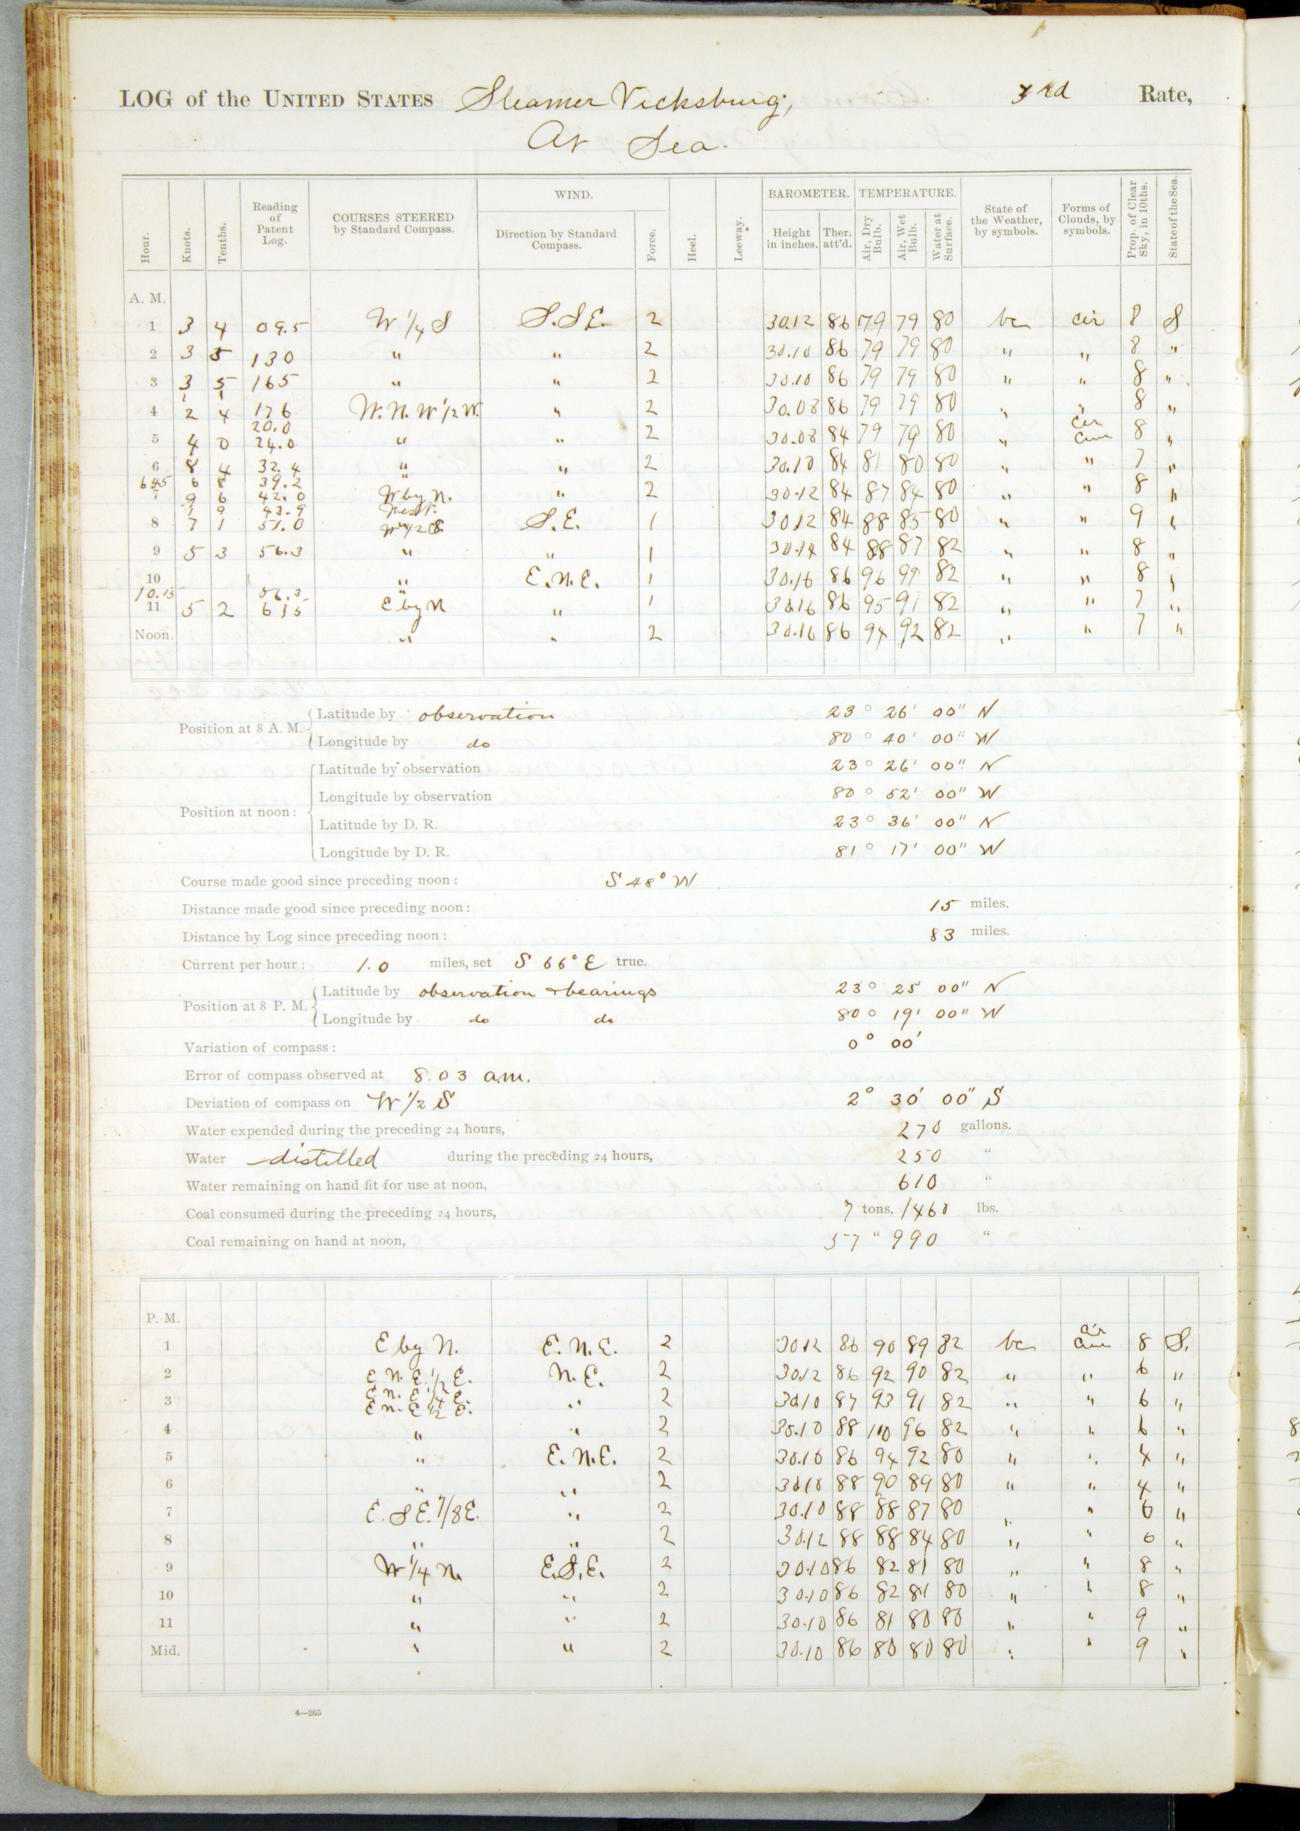 LOG of the UNITED STATES Steamer Vicksburg, 3rd Rate,
At Sea.
Hour. Knots. Tenths. Reading of Patent Log. COURSES STEERED by Standard Compass. WIND. Direction by Standard Compass. Force. Heel. Leeway. BAROMETER. Height in inches. Ther. att'd. TEMPERATURE. Air, Dry Bulb. Air, Wet Bulb. Water at Surface. State of the Weather, by symbols. Forms of Clouds, by symbols. Prop. of Clear Sky, in 10ths. State of the Sea.
A. M.
1 3 4 09.5 W 1/4 S S.S.E. 2 30.12 86 79 79 80 bc cir 8 S
2 3 5 130 " " 2 30.10 86 79 79 80 " " 8 "
3 3 5 165 " " 2 30.10 86 79 79 80 " " 8 "
4 2 4 176 W.N.W 1/2 W. " 2 30.08 86 79 79 80 " " 8 "
20.0 cir
5 4 0 24.0 " " 2 30.08 84 79 79 80 " cum 8 "
6 8 4 32.4 " " 2 30.10 84 81 80 80 " " 7 "
6 45 6 8 39.2 "
7 9 6 42.0 W by N. " 2 30.12 84 87 84 80 " " 8 "
1 9 43.9 West.
8 7 1 51.0 W 1/2 S. S.E. 1 30.12 84 88 85 80 " " 9 "
9 5 3 56.3 " " 1 30.14 84 88 87 82 " " 8 "
10 " E.N.E. 1 30.16 86 96 91 82 " " 8 "
10.15 56.3
11 5 2 61.5 E by N " 1 30.16 86 95 91 82 " " 7 "
Noon. " " 2 30.16 86 94 92 82 " " 7 "
Position at 8 A. M. Latitude by observation 23° 26' 00" N
Longitude by do 80° 40' 00" W
Position at noon: Latitude by observation 23° 26' 00" N
Longitude by observation 80° 52' 00" W
Latitude by D. R. 23° 36' 00" N
Longitude by D. R. 81° 17' 00" W
Course made good since preceding noon: S 48° W
Distance made good since preceding noon: 15 miles.
Distance by Log since preceding noon: 83 miles.
Current per hour: 1.0 miles, set S 66° E true.
Position at 8 P. M. Latitude by observation & bearings 23° 25 00" N
Longitude by do do 80° 19' 00" W
Variation of compass: 0° 00'
Error of compass observed at 8.03 am.
Deviation of compass on W 1/2 S 2° 30' 00" S
Water expended during the preceding 24 hours, 270 gallons.
Water distilled during the preceding 24 hours, 250 "
Water remaining on hand fit for use at noon, 610 "
Coal consumed during the preceding 24 hours, 7 tons, 1460 lbs.
Coal remaining on hand at noon, 57 " 990 "
P. M.
1 E by N. E.N.E. 2 30.12 86 90 89 82 bc cir cum 8 S.
2 E.N.E. 1/2 E. N.E. 2 30.12 86 92 90 82 " " 6 "
E.N.E 1/4 E.
3 E.N.E 1/2 E. " 2 30.10 87 93 91 82 " " 6 "
4 " " 2 30.10 88 110 96 82 " " 6 "
5 " E.N.E. 2 30.10 86 94 92 80 " " 4 "
6 " " 2 30.10 88 90 89 80 " " 4 "
7 E.S.E. 7/8 E. " 2 30.10 88 88 87 80 " " 6 "
8 " " 2 30.12 88 88 84 80 " " 6 "
9 W 1/4 N. E.S.E. 2 30.10 86 82 81 80 " " 8 "
10 " " 2 30.10 86 82 81 80 " " 8 "
11 " " 2 30.10 86 81 80 80 " " 9 "
Mid. " " 2 30.10 86 80 80 80 " " 9 "
4—265